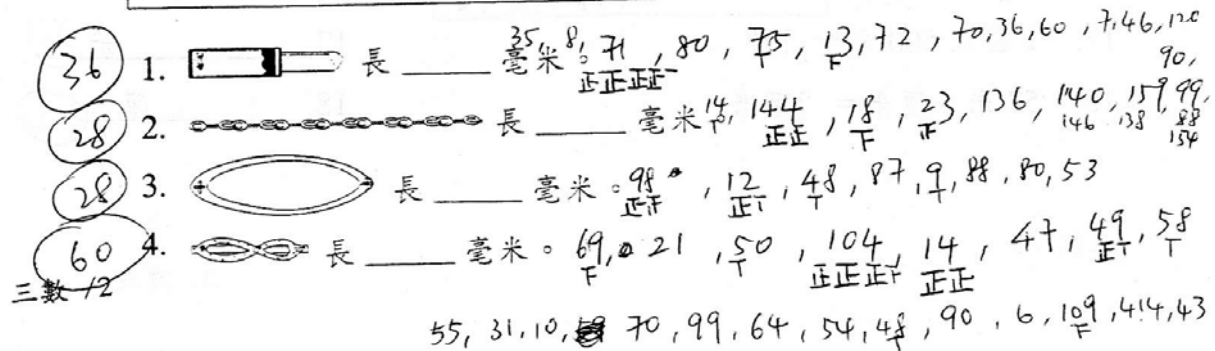 36 1. 長 ______ 毫米。 35, 8, 71 正正正正, 80, 75, 13, 72, 70, 36, 60, 7, 46, 120
90,
28 2. 長 ______ 毫米 14, 144 正正, 18, 23, 136, 140, 159, 99,
146 138 88
154
28 3. 長 ______ 毫米。 98, 12, 48, 87, 9, 88, 80, 53
60 4. 長 ______ 毫米。 69, 21, 50, 104, 14 正正, 47, 49, 58
三數 12
55, 31, 10, 70, 99, 64, 54, 48, 90, 6, 109, 414, 43